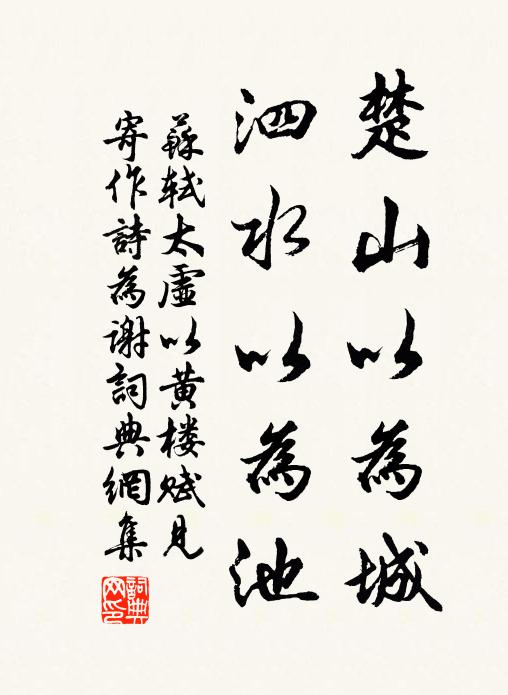 楚山以為城
泗水以為池
蘇軾太虛以黄楼赋見
寄作詩為谢詞典網集
詞典網印